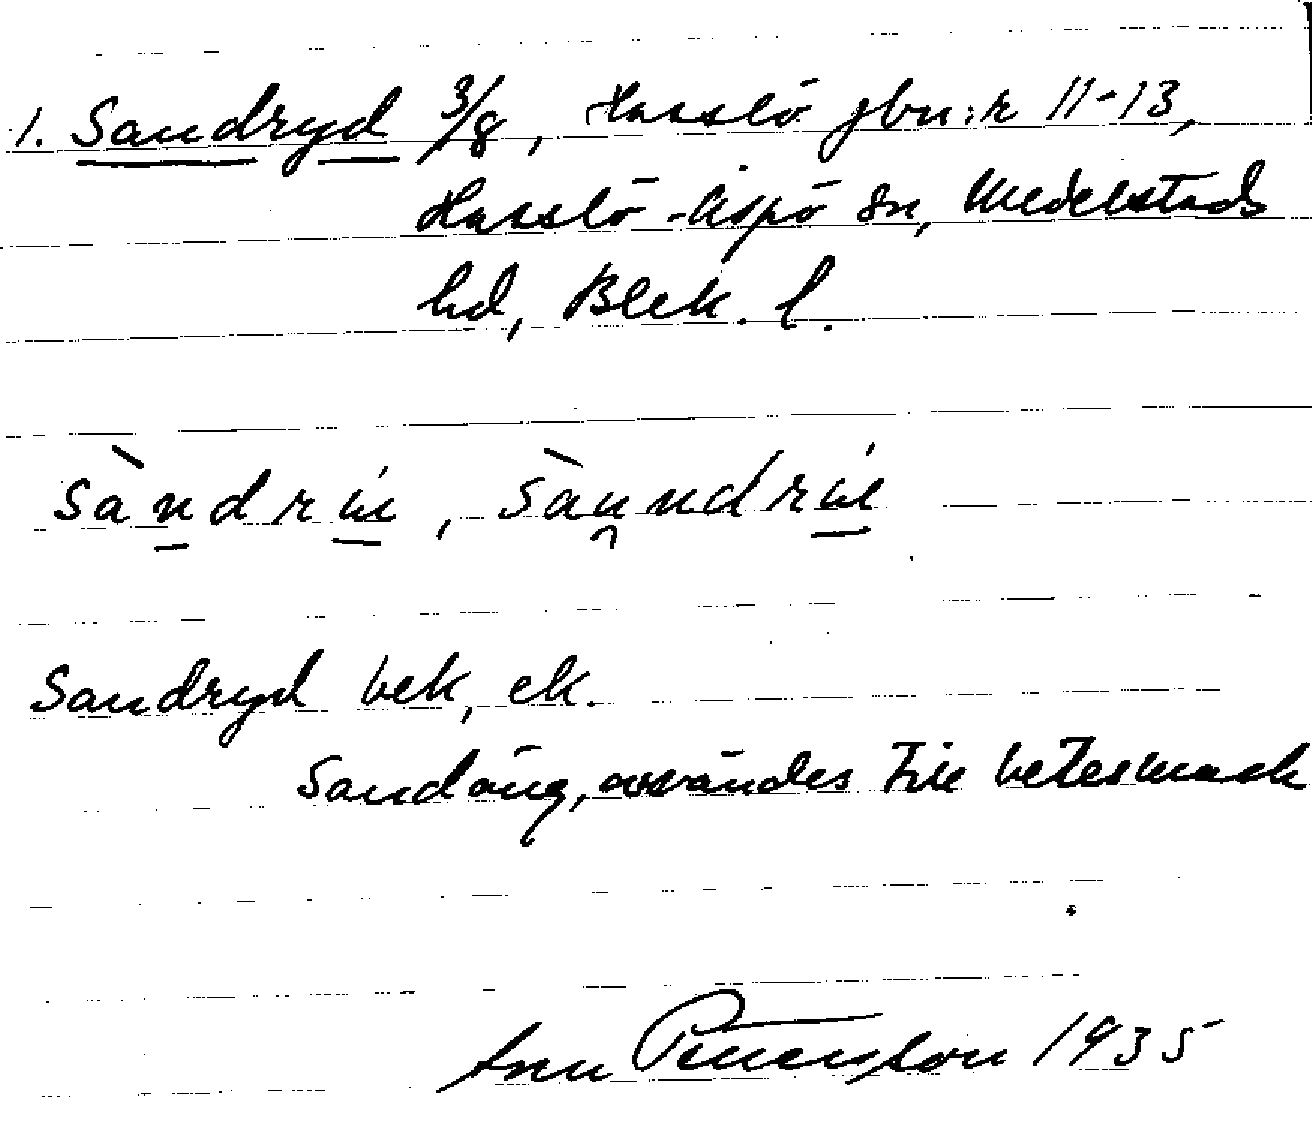 1. Sandryd 3/8, Hasslö jbn:r 11-13,
Hasslö-Aspö sn, Medelstads
hd, Blek. l.
Sandryd bek, ek.
Sandäng, användes till betesmark
Pettersson 1935